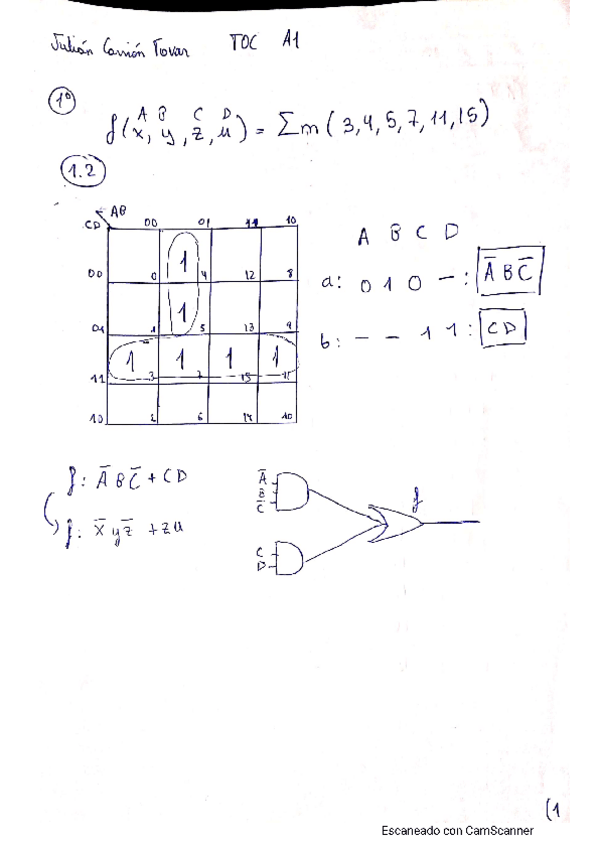 Julián Carrión Tovar TOC A1
1º
A B C D
f(x, y, z, u) = Σm(3,4,5,7,11,15)
1.2
AB
CD 00 01 11 10
00 0 1 4 12 8
01 1 1 5 13 9
11 1 3 1 7 1 15 1 11
10 2 6 14 10
A B C D
a: 0 1 0 - : A̅ B C̅
b: - - 1 1 : CD
f: A̅ B C̅ + CD
f: x̅ y z̅ + zu
A̅
B
C̅
f
C
D
(1
Escaneado con CamScanner